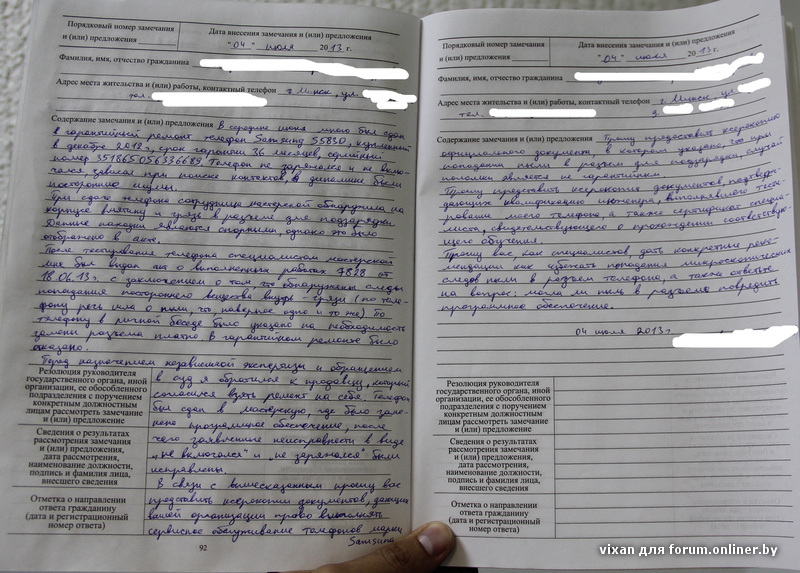 Порядковый номер замечания
и (или) предложения
Дата внесения замечания и (или) предложения
"04" июля 2013 г.
Фамилия, имя, отчество гражданина
Адрес места жительства и (или) работы, контактный телефон г. Минск, ул.
тел.
Содержание замечания и (или) предложения В середине июня мною был сдан
в гарантийный ремонт телефон Samsung S5830, купленный
в декабре 2012 г., срок гарантии 36 месяцев, серийный
номер 351865056336689. Телефон не заряжался и не вклю-
чался, зависал при поиске контактов, в динамике были
посторонние шумы.
При сдаче телефона сотрудница мастерской обнаружила на
корпусе вмятину и грязь в разъеме для подзарядки.
Данные находки являются спорными, однако это было
отображено в акте.
После тестирования телефона специалистом мастерской
мне был выдан акт о выполненных работах 4828 от
18.06.13 г. с заключением о том, что обнаружены следы
попадания постороннего вещества внутрь - грязи (по теле-
фону речь шла о пыли, что, наверное одно и то же). По
телефону в личной беседе было указано на необходимость
замены разъема платно. В гарантийном ремонте было
отказано.
Перед назначением независимой экспертизы и обращением
в суд я обратился к продавцу, который
согласился взять ремонт на себя. Телефон
был сдан в мастерскую, где было заме-
нено программное обеспечение, после
чего заявленные неисправности в виде
"не включался" и "не заряжался" были
исправлены.
В связи с вышесказанным прошу вас
представить ксерокопии документов, дающих
вашей организации право выполнять
сервисное обслуживание телефонов марки
Samsung
Резолюция руководителя
государственного органа, иной
организации, ее обособленного
подразделения с поручением
конкретным должностным
лицам рассмотреть замечание
и (или) предложение
Сведения о результатах
рассмотрения замечания
и (или) предложения,
дата рассмотрения,
наименование должности,
подпись и фамилия лица,
внесшего сведения
Отметка о направлении
ответа гражданину
(дата и регистрационный
номер ответа)
92
Порядковый номер замечания
и (или) предложения
Дата внесения замечания и (или) предложения
"04" июля 2013 г.
Фамилия, имя, отчество гражданина
Адрес места жительства и (или) работы, контактный телефон г. Минск, ул.
тел.
Содержание замечания и (или) предложения Прошу предоставить ксерокопию
официального документа, в котором указано, что при
попадании пыли в разъем для подзарядки, случай
поломки является не гарантийным.
Прошу представить ксерокопию документов, подтверж-
дающих квалификацию инженера, выполнявшего тести-
рование моего телефона, а также сертификат специа-
листа, свидетельствующего о прохождении соответствую-
щего обучения.
Прошу вас как специалистов, дать конкретные реко-
мендации как избежать попадания микроскопических
следов пыли в разъем телефона, а также ответьте
на вопрос: могла ли пыль в разъеме повредить
программное обеспечение.
04 июля 2013 г.
Резолюция руководителя
государственного органа, иной
организации, ее обособленного
подразделения с поручением
конкретным должностным
лицам рассмотреть замечание
и (или) предложение
Сведения о результатах
рассмотрения замечания
и (или) предложения,
дата рассмотрения,
наименование должности,
подпись и фамилия лица,
внесшего сведения
Отметка о направлении
ответа гражданину
(дата и регистрационный
номер ответа)
vixan для forum.onliner.by